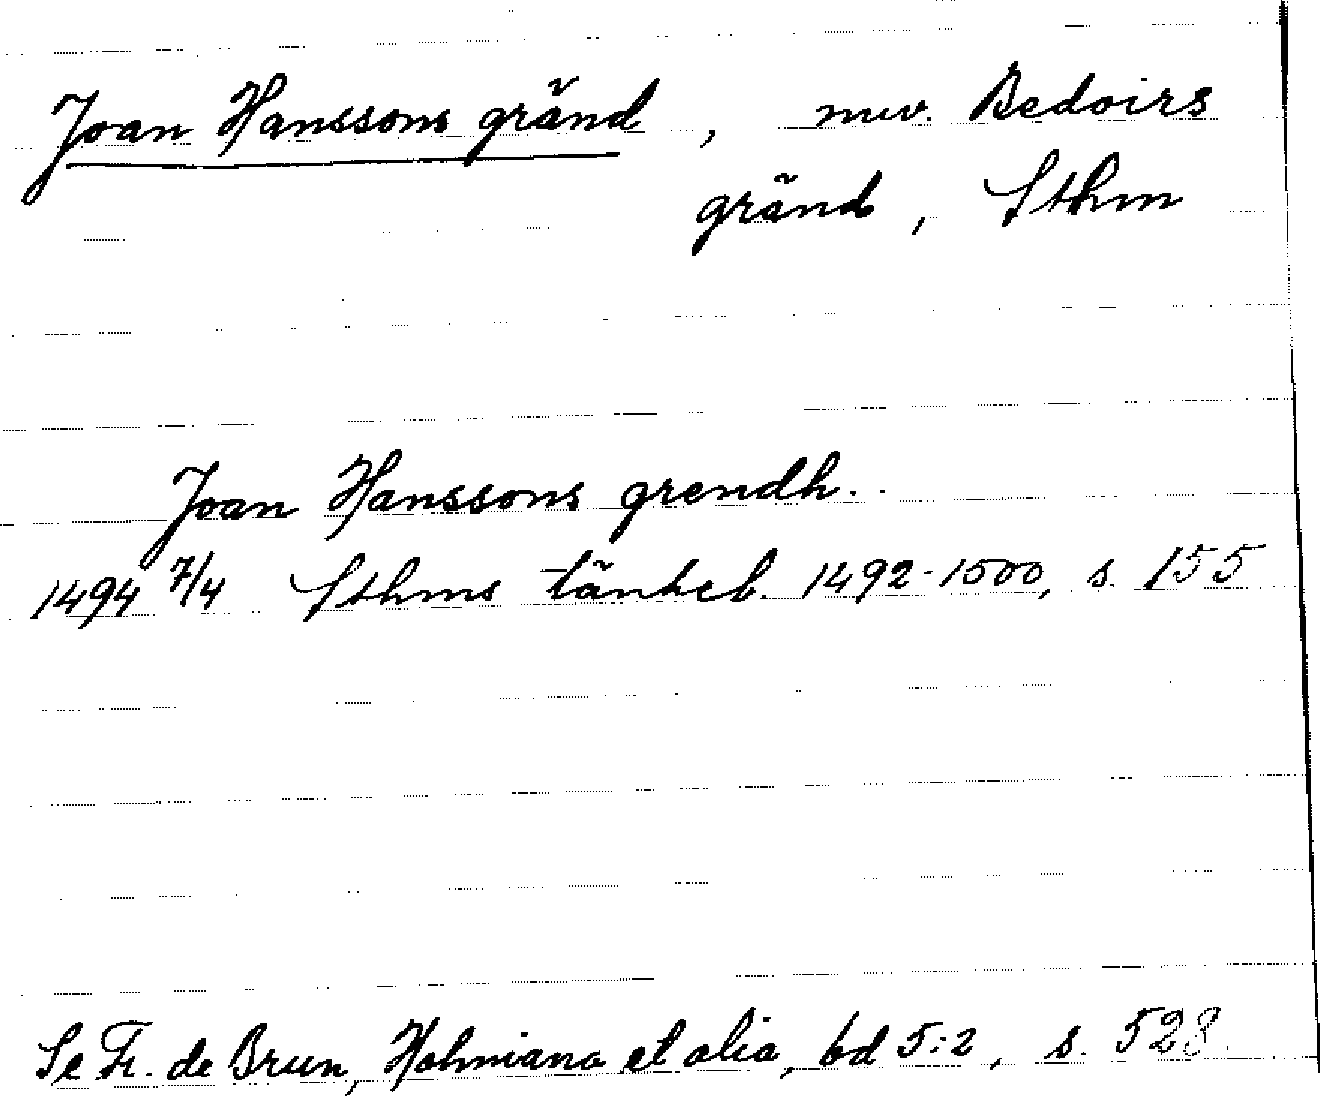 Joan Hanssons gränd, nuv. Bedoirs
gränd, Sthm
Joan Hanssons grendh..
1494 7/4 Sthms tänkeb. 1492-1500, s. 155
Se Fr. de Brun, Holmiana et alia, bd 5:2, s. 528.